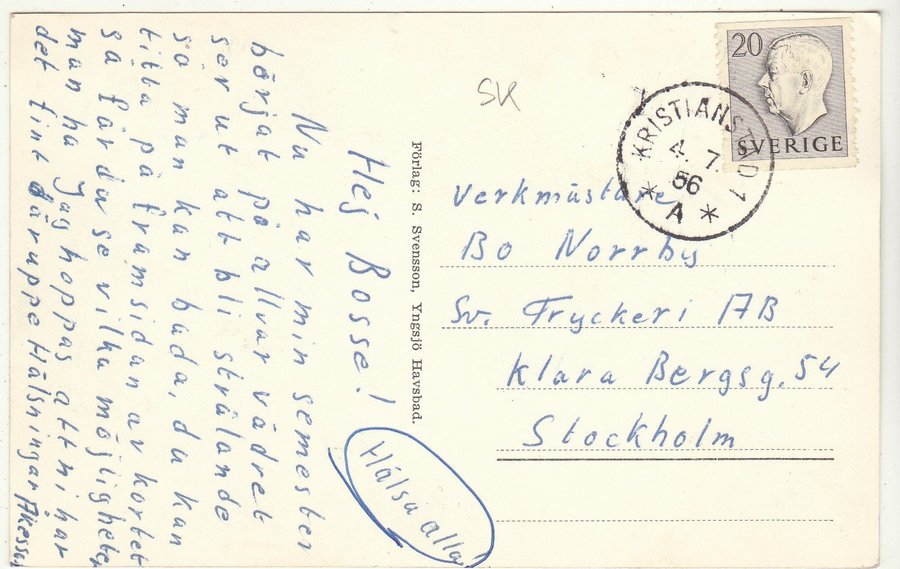 Hej Bosse!
Nu har min semester
börjat på allvar vädret
ser ut att bli strålande
så man kan bada, du kan
titta på framsidan av kortet
så får du se vilka möjligheter
man ha Jag hoppas att ni har
det fint däruppe Hälsningar Åkesson
Hälsa alla
Förlag: S. Svensson, Yngsjö Havsbad.
SK
20
SVERIGE
KRISTIANSTAD 1
4. 7.
56
* A *
Verkmästare
Bo Norrby
Sv. Tryckeri AB
Klara Bergsg. 54
Stockholm